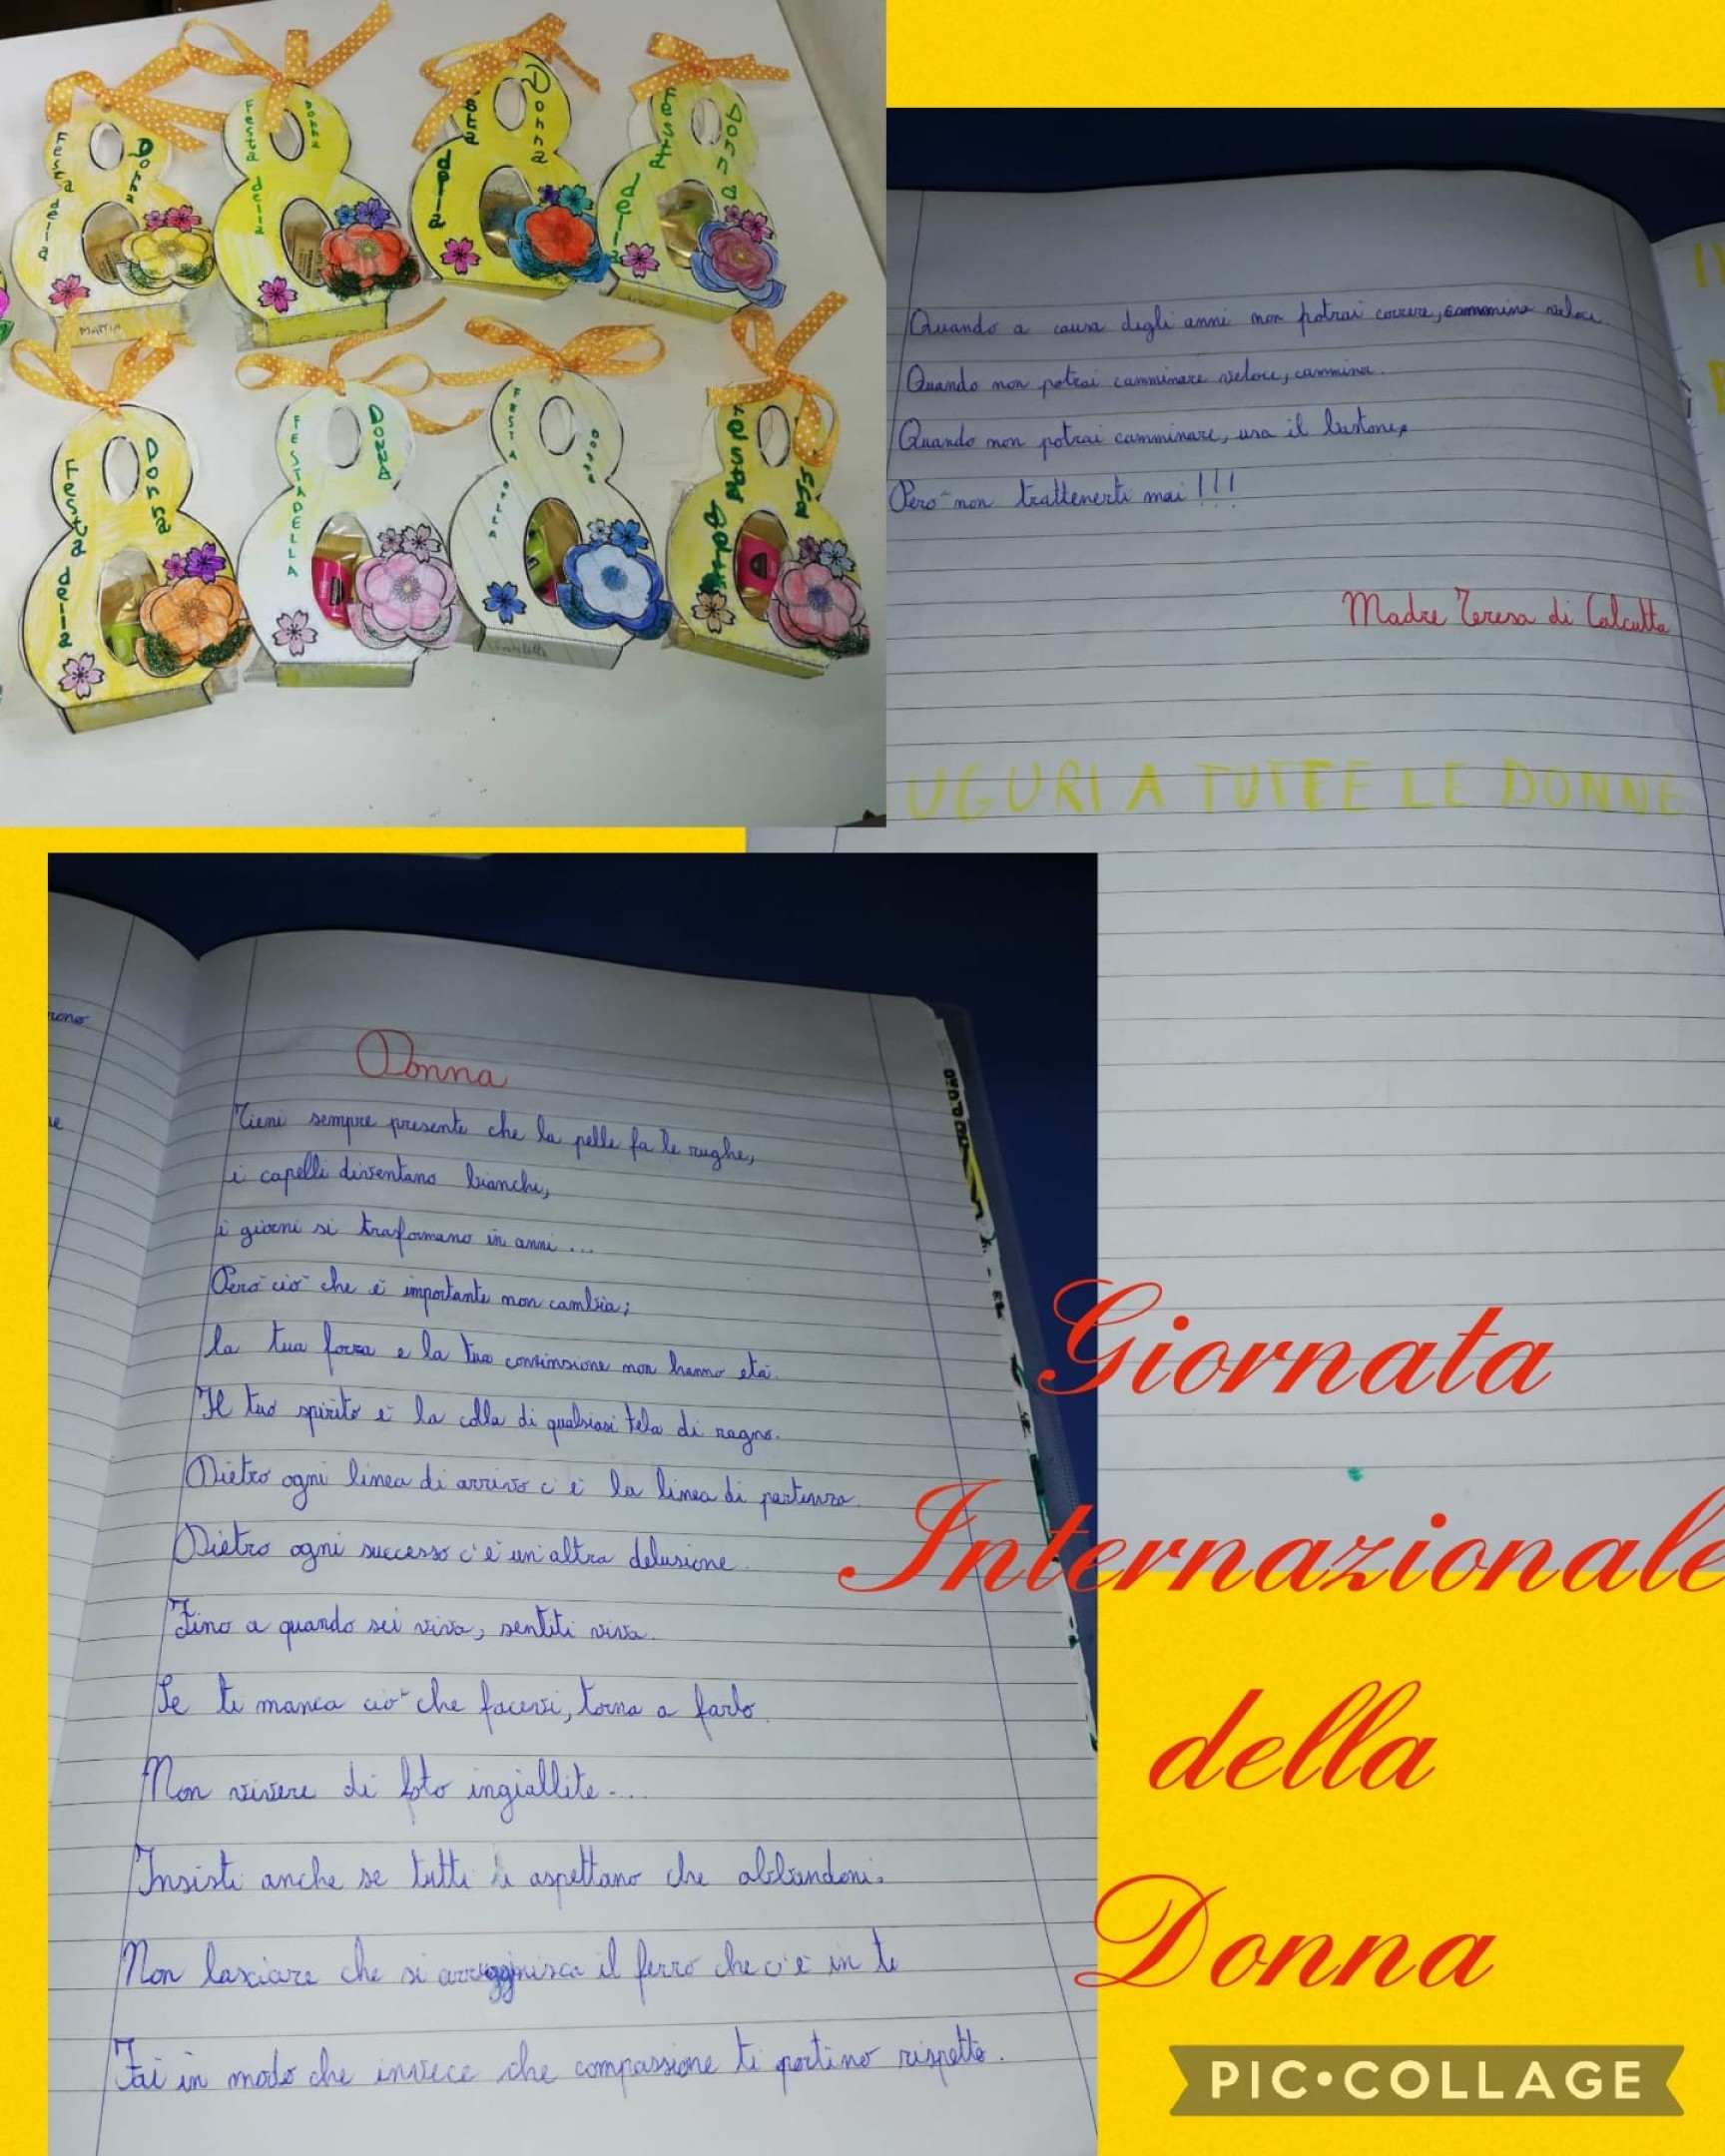 Festa della Donna
Festa della Donna
sta della Donna
Festa della Donna
MATTIA
Festa della Donna
FESTA DELLA DONNA
FESTA DELLA
Festa della
Quando a causa degli anni non potrai correre, cammina veloce.
Quando non potrai camminare veloce, cammina.
Quando non potrai camminare, usa il bastone,
Però non trattenerti mai!!!
Madre Teresa di Calcutta
UGURI A TUTTE LE DONNE
rono
re
Donna
Tieni sempre presente che la pelle fa le rughe,
i capelli diventano bianchi,
i giorni si traformano in anni ...
Però ciò che è importante non cambia;
la tua forza e la tua convinsione non hanno età.
Il tuo spirito è la colla di qualsiasi tela di ragno.
Dietro ogni linea di arrivo c'è la linea di partenza.
Dietro ogni successo c'è un'altra delusione.
Fino a quando sei viva, sentiti viva.
Se ti manca ciò che facevi, torna a farlo.
Non vivere di foto ingiallite....
Insisti anche se tutti si aspettano che abbandoni.
Non lasciare che si arrugginisca il ferro che c'è in te
Fai in modo che invece che compassione ti portino rispetto.
Giornata
Internazionale
della
Donna
PIC•COLLAGE